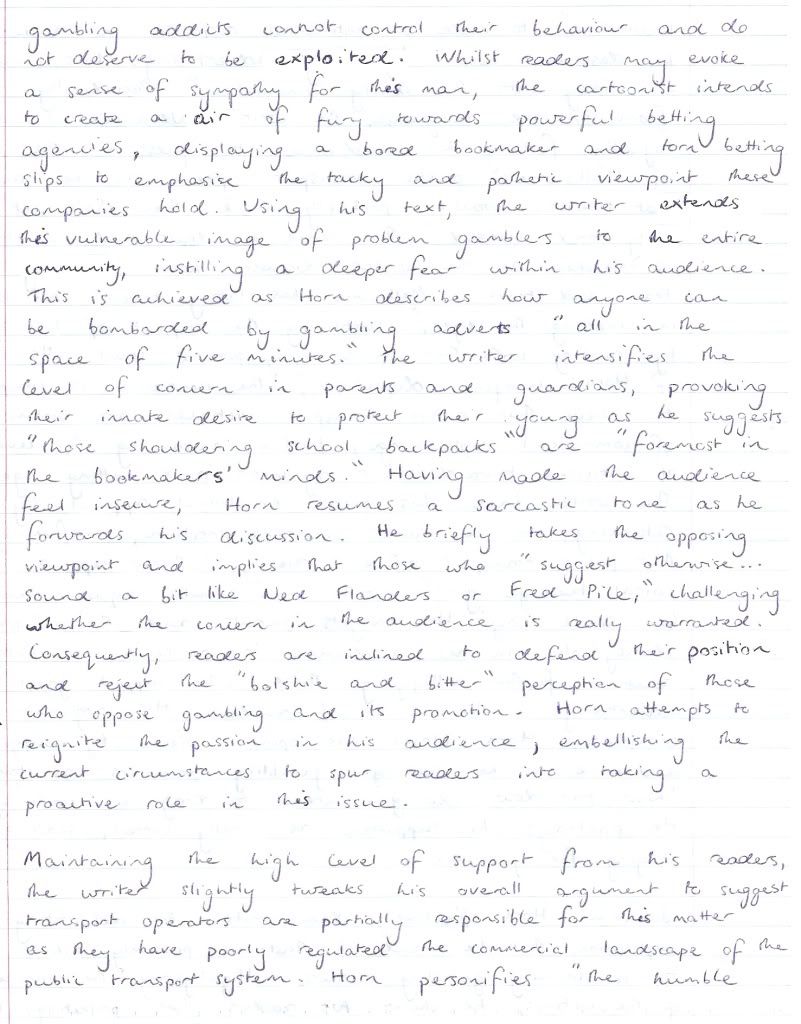 gambling addicts cannot control their behaviour and do
not deserve to be exploited. Whilst readers may evoke
a sense of sympathy for this man, the cartoonist intends
to create a air of fury towards powerful betting
agencies, displaying a bored bookmaker and torn betting
slips to emphasise the tacky and pathetic viewpoint these
companies hold. Using his text, the writer extends
this vulnerable image of problem gamblers to the entire
community, instilling a deeper fear within his audience.
This is achieved as Horn describes how anyone can
be bombarded by gambling adverts "all in the
space of five minutes." The writer intensifies the
level of concern in parents and guardians, provoking
their innate desire to protect their young as he suggests
"those shouldering school backpacks" are "foremost in
the bookmakers' minds." Having made the audience
feel insecure, Horn resumes a sarcastic tone as he
forwards his discussion. He briefly takes the opposing
viewpoint and implies that those who "suggest otherwise...
sound a bit like Ned Flanders or Fred Pile," challenging
whether the concern in the audience is really warranted.
Consequently, readers are inclined to defend their position
and reject the "bolshie and bitter" perception of those
who oppose gambling and its promotion. Horn attempts to
reignite the passion in his audience, embellishing the
current circumstances to spur readers into taking a
proactive role in this issue.
Maintaining the high level of support from his readers,
the writer slightly tweaks his overall argument to suggest
transport operators are partially responsible for this matter
as they have poorly regulated the commercial landscape of the
public transport system. Horn personifies "the humble